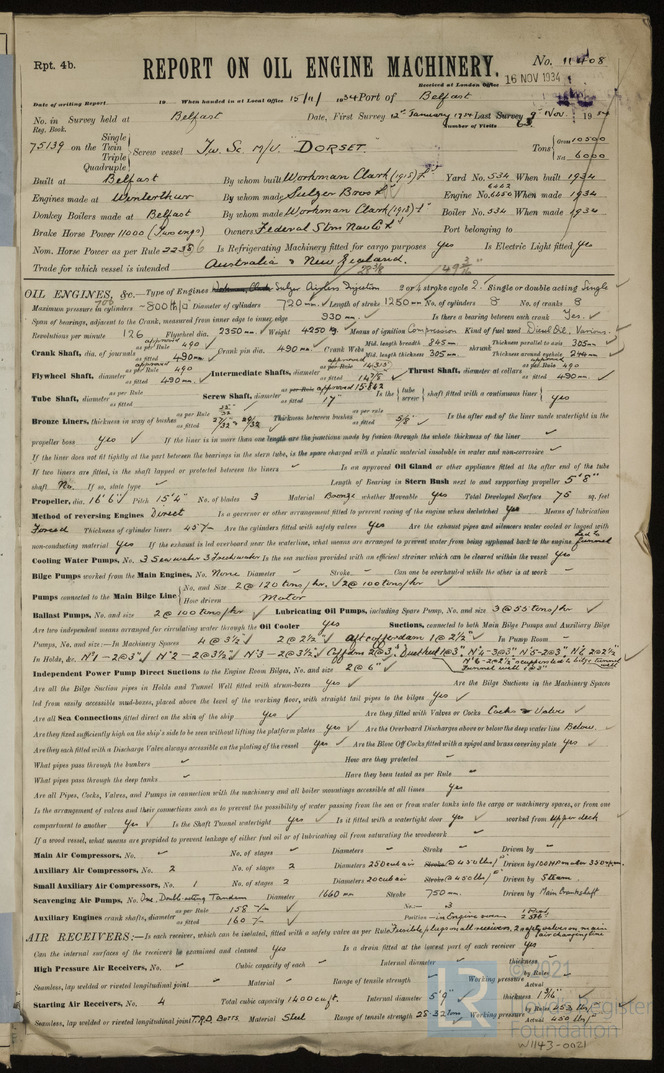 Rpt. 4b.
REPORT ON OIL ENGINE MACHINERY.
No. 11408
Received at London Office 16 NOV 1934
Date of writing Report 19 When handed in at Local Office 15/11/ 1934 Port of Belfast
No. in Survey held at Belfast Date, First Survey 12th January 1934 Last Survey 9th Nov. 1934
Reg. Book. Number of Visits
75139 on the Single Twin Triple Quadruple Screw vessel Tw. Sc. M/V "DORSET" Tons Gross 10500 Net 6000
Built at Belfast By whom built Workman Clark (1915) Ld Yard No. 534 When built 1934
Engines made at Winterthur By whom made Sulzer Bros Ld Engine No. When made 1934
Donkey Boilers made at Belfast By whom made Workman Clark (1918) Ld Boiler No. 534 When made 1934
Brake Horse Power 11000 (Two engs) Owners Federal Stm Nav Co Ld Port belonging to
Nom. Horse Power as per Rule 2235 Is Refrigerating Machinery fitted for cargo purposes yes Is Electric Light fitted yes
Trade for which vessel is intended Australia & New Zealand.
OIL ENGINES, &c.—Type of Engines Sulzer Airless Injection 2 or 4 stroke cycle 2. Single or double acting Single
Maximum pressure in cylinders 800 lb/□" Diameter of cylinders 720 m.m. Length of stroke 1250 mm No. of cylinders 8 No. of cranks 8
Span of bearings, adjacent to the Crank, measured from inner edge to inner edge 930 mm. Is there a bearing between each crank Yes.
Revolutions per minute 126 Flywheel dia. 2350 mm Weight 4250 Kg. Means of ignition Compression Kind of fuel used Diesel Oil, Various.
Crank Shaft, dia. of journals as per Rule approved 490 as fitted 490 mm Crank pin dia. 490 mm. Crank Webs Mid. length breadth 845 mm Mid. length thickness 305 mm shrunk Thickness parallel to axis 305 mm Thickness around eyehole 244 mm
Flywheel Shaft, diameter as per Rule 490 as fitted 490 mm. Intermediate Shafts, diameter as per Rule as fitted 14 7/8" Thrust Shaft, diameter at collars as per Rule 490 as fitted 490 mm.
Tube Shaft, diameter as per Rule as fitted Screw Shaft, diameter as per Rule approved 15.862 as fitted 17" Is the tube screw shaft fitted with a continuous liner yes
Bronze Liners, thickness in way of bushes as per Rule as fitted Thickness between bushes as per rule as fitted 5/8" Is the after end of the liner made watertight in the
propeller boss yes If the liner is in more than one length are the junctions made by fusion through the whole thickness of the liner
If the liner does not fit tightly at the part between the bearings in the stern tube, is the space charged with a plastic material insoluble in water and non-corrosive
If two liners are fitted, is the shaft lapped or protected between the liners Is an approved Oil Gland or other appliance fitted at the after end of the tube
shaft No. If so, state type Length of Bearing in Stern Bush next to and supporting propeller 5' 8"
Propeller, dia. 16' 6" Pitch 15' 4" No. of blades 3 Material Bronze whether Moveable yes Total Developed Surface 75 sq. feet
Method of reversing Engines Direct Is a governor or other arrangement fitted to prevent racing of the engine when declutched yes Means of lubrication
Forced Thickness of cylinder liners Are the cylinders fitted with safety valves yes Are the exhaust pipes and silencers water cooled or lagged with
non-conducting material yes If the exhaust is led overboard near the waterline, what means are arranged to prevent water from being syphoned back to the engine Led to funnel
Cooling Water Pumps, No. 3 Sea water 3 Fresh water Is the sea suction provided with an efficient strainer which can be cleared within the vessel yes
Bilge Pumps worked from the Main Engines, No. None Diameter Stroke Can one be overhauled while the other is at work
Pumps connected to the Main Bilge Line No. and Size 2 @ 120 tons/hr. 2 @ 100 tons/hr How driven Motor
Ballast Pumps, No. and size 2 @ 100 tons/hr Lubricating Oil Pumps, including Spare Pump, No. and size 3 @ 55 tons/hr
Are two independent means arranged for circulating water through the Oil Cooler yes Suctions, connected to both Main Bilge Pumps and Auxiliary Bilge
Pumps, No. and size:—In Machinery Spaces 4 @ 3½" 2 @ 2½" aft cofferdam 1 @ 2½" In Pump Room
In Holds, &c. No 1 - 2 @ 3" No 2 - 2 @ 3½" No 3 - 2 @ 3½" 2 @ 3" 1 @ 3" No 4 - 3 @ 3" No 5 - 2 @ 3" No 6 2 @ 2½"
Independent Power Pump Direct Suctions to the Engine Room Bilges, No. and size 2 @ 6"
Are all the Bilge Suction pipes in Holds and Tunnel Well fitted with strum-boxes yes Are the Bilge Suctions in the Machinery Spaces
led from easily accessible mud-boxes, placed above the level of the working floor, with straight tail pipes to the bilges yes
Are all Sea Connections fitted direct on the skin of the ship yes Are they fitted with Valves or Cocks Cocks & Valves
Are they fixed sufficiently high on the ship's side to be seen without lifting the platform plates yes Are the Overboard Discharges above or below the deep water line Below.
Are they each fitted with a Discharge Valve always accessible on the plating of the vessel yes Are the Blow Off Cocks fitted with a spigot and brass covering plate yes
What pipes pass through the bunkers How are they protected
What pipes pass through the deep tanks Have they been tested as per Rule
Are all Pipes, Cocks, Valves, and Pumps in connection with the machinery and all boiler mountings accessible at all times yes
Is the arrangement of valves and their connections such as to prevent the possibility of water passing from the sea or from water tanks into the cargo or machinery spaces, or from one
compartment to another yes Is the Shaft Tunnel watertight yes Is it fitted with a watertight door yes worked from Upper deck
If a wood vessel, what means are provided to prevent leakage of either fuel oil or of lubricating oil from saturating the woodwork
Main Air Compressors, No. No. of stages Diameters Stroke Driven by
Auxiliary Air Compressors, No. 2 No. of stages 2 Diameters 250 cub air Stroke @ 450 lbs/□" Driven by 100 HP motor 350 rpm.
Small Auxiliary Air Compressors, No. 1 No. of stages 2 Diameters 20 cub air Stroke @ 450 lbs/□" Driven by Steam
Scavenging Air Pumps, No. One Double acting Tandem Diameter 1660 mm Stroke 750 mm. Driven by Main Crankshaft
Auxiliary Engines crank shafts, diameter as per Rule 158 as fitted 160 No. 3 Position in Engine room
AIR RECEIVERS:—Is each receiver, which can be isolated, fitted with a safety valve as per Rule Fusible plugs in all receivers, 2 safety valves on main air charging line
Can the internal surfaces of the receivers be examined and cleaned Yes Is a drain fitted at the lowest part of each receiver yes
High Pressure Air Receivers, No. Cubic capacity of each Internal diameter thickness
Seamless, lap welded or riveted longitudinal joint Material Range of tensile strength Working pressure by Rules Actual
Starting Air Receivers, No. 4 Total cubic capacity 1400 cu ft. Internal diameter 5' 9" thickness 1 3/16"
Seamless, lap welded or riveted longitudinal joint T.R.D. Butts Material Steel Range of tensile strength 28-32 tons Working pressure by Rules 453 lbs Actual 450 lbs
© 2021
LR
Lloyd's Register
Foundation
W1143-0021